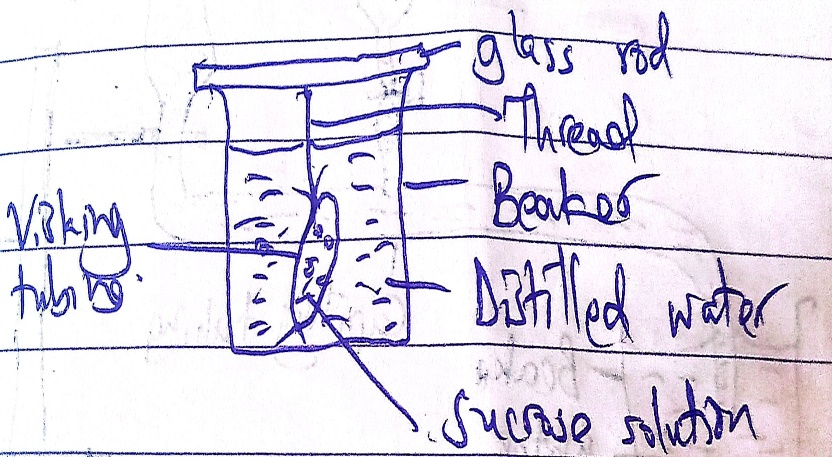 glass rod
Thread
Beaker
Visking
tubing.
Distilled water
Sucrose solution